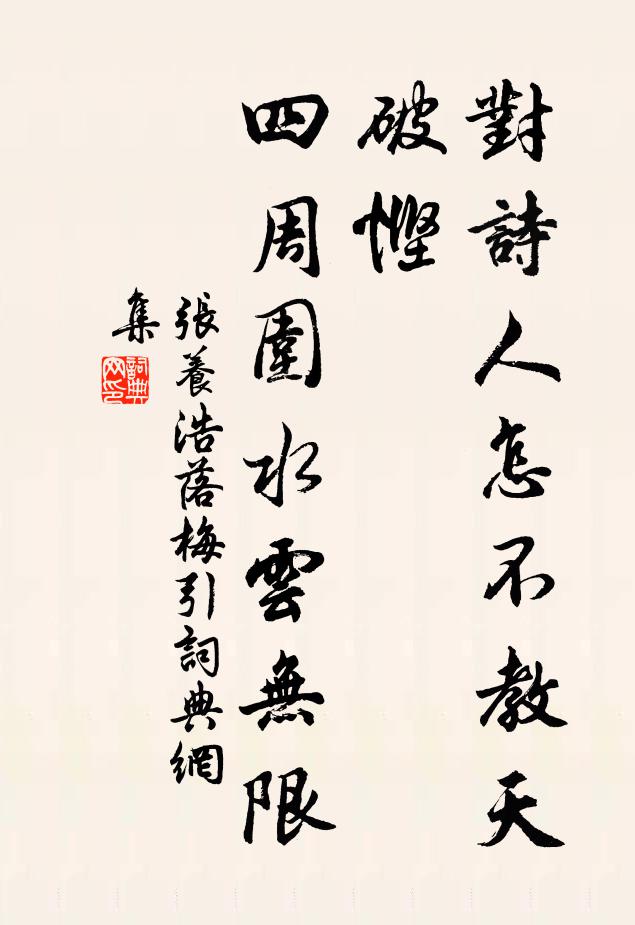 對詩人怎不教天
破慳
四周圍水雲無限
張養浩落梅引詞典網
集
詞典
网印